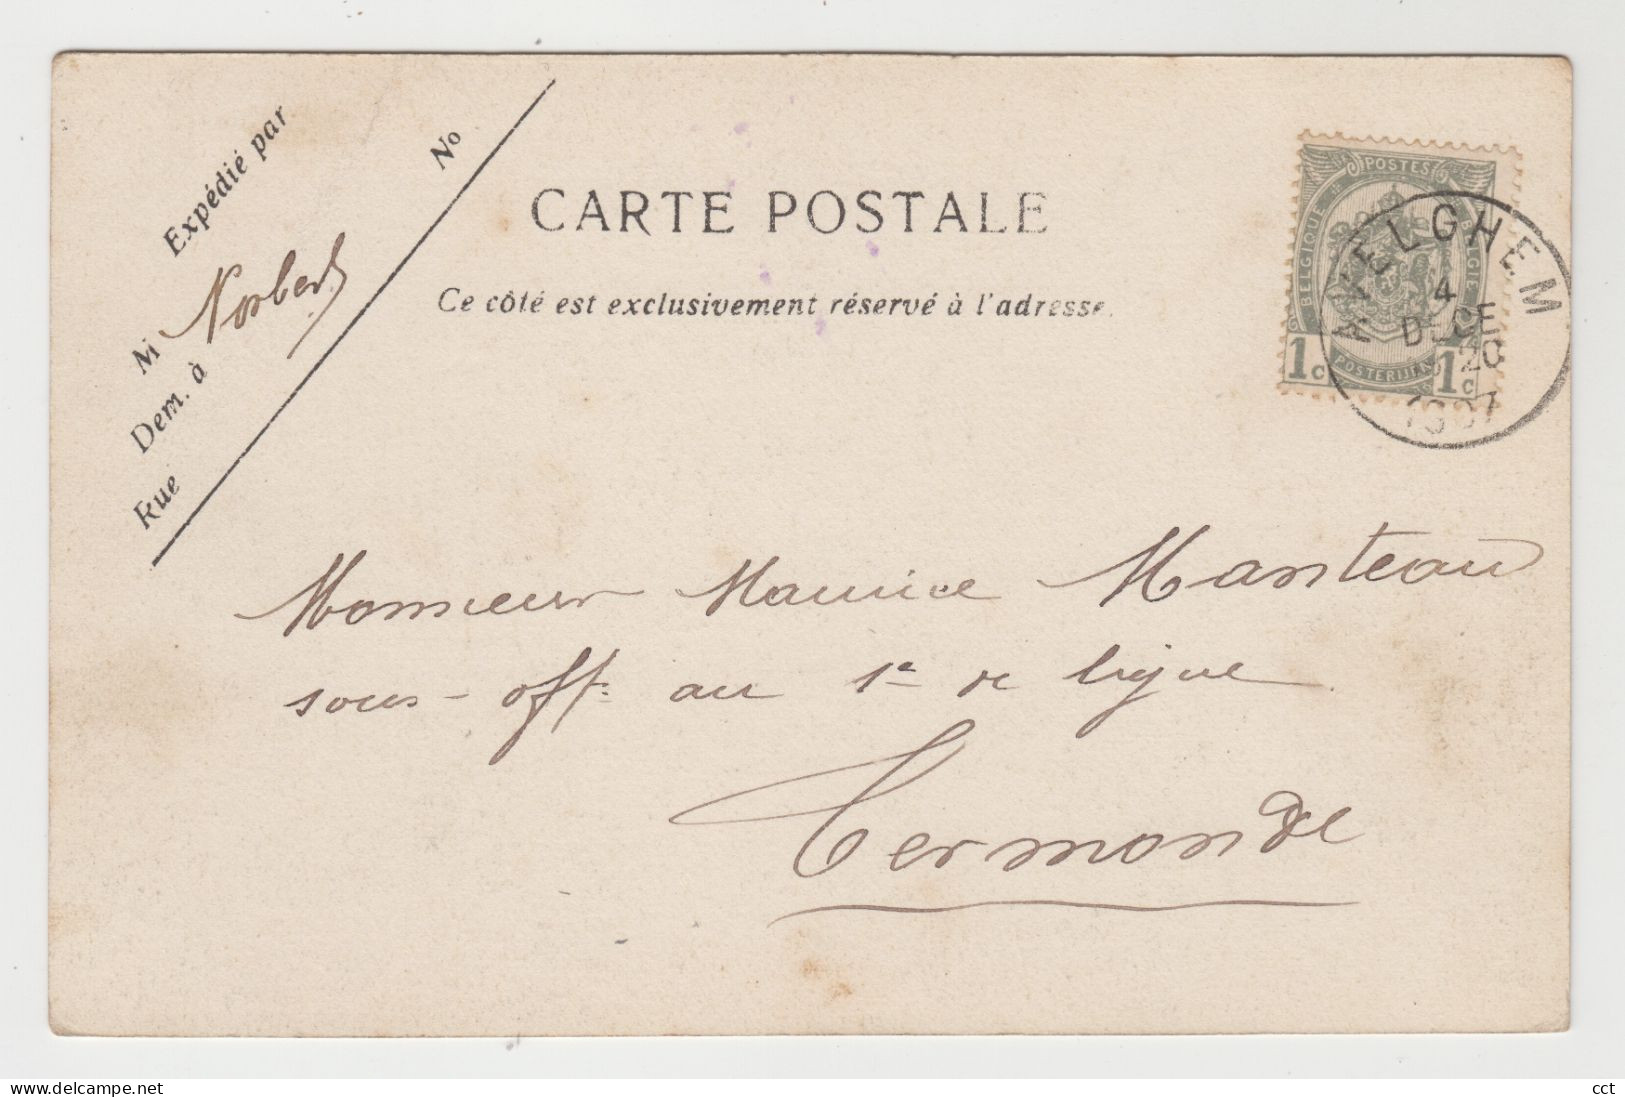 Expédié par
No
M Norbert
Dem. à
Rue
CARTE POSTALE
Ce côté est exclusivement réservé à l'adresse.
POSTES
BELGIQUE
BELGIE
POSTERIJEN
1c 1c
AVELGHEM
4
DECE
20
1907
Monsieur Maurice Manteau
sous-off. au 1e de ligne
Termonde
www.delcampe.net
cct